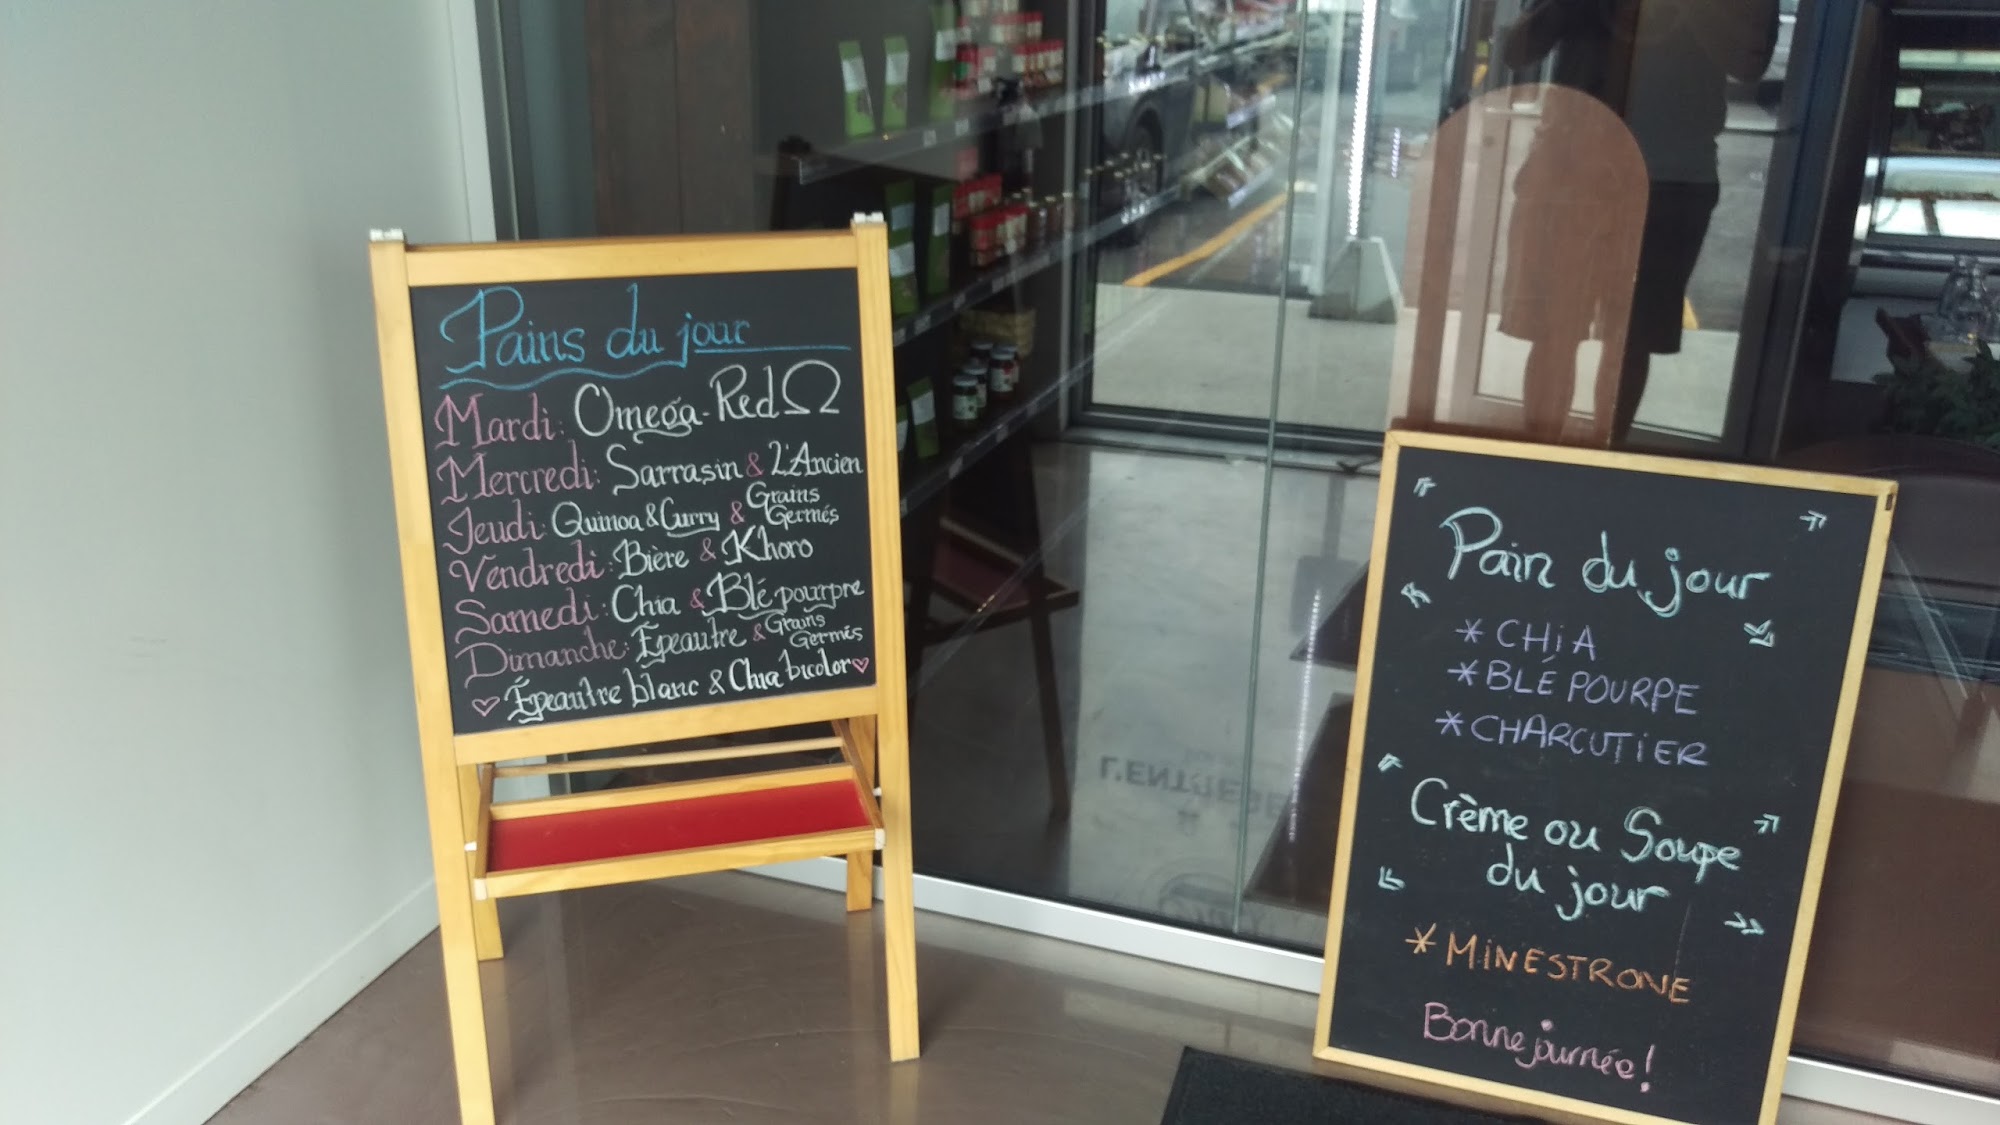 Pains du jour
Mardi: Omega-Red Ω
Mercredi: Sarrasin & L'Ancien
Jeudi: Quinoa & Curry & Grains Germés
Vendredi: Bière & Khoro
Samedi: Chia & Blé pourpre
Dimanche: Épeautre & Grains Germés
Épeautre blanc & Chia bicolor
Pain du jour
* CHiA
* BLÉ POURPE
* CHARCUTiER
Crème ou Soupe
du jour
* MiNESTRONE
Bonne journée!